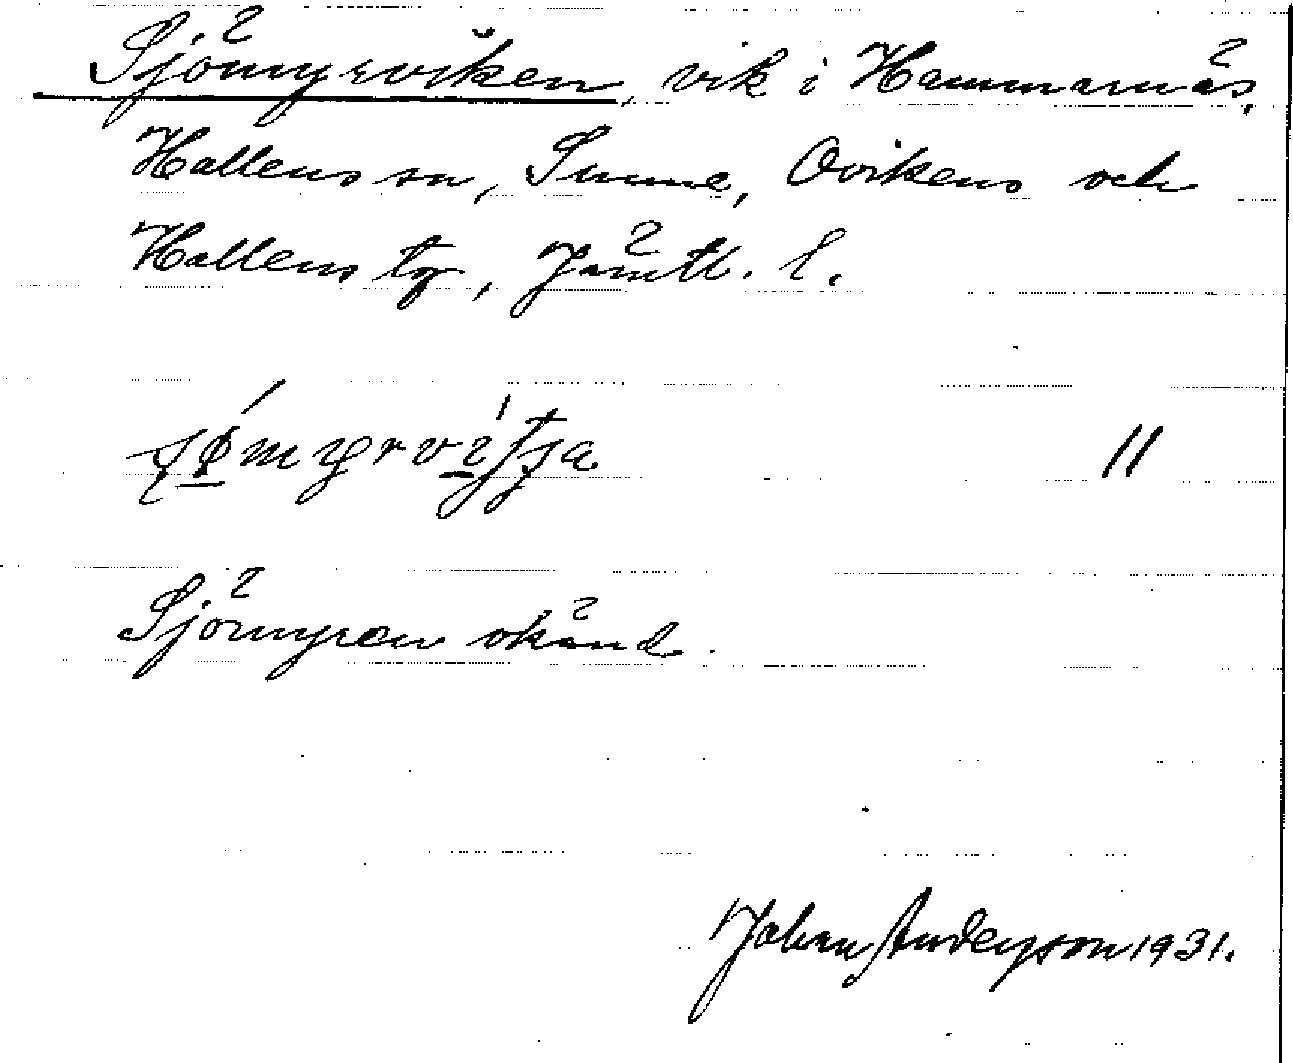 Sjömyrviken, vik i Hammarnäs,
Hallens sn, Sunne, Ovikens och
Hallens tg, Jämtl. l.
11
Sjömyren okänd.
Johan Anderson 1931.